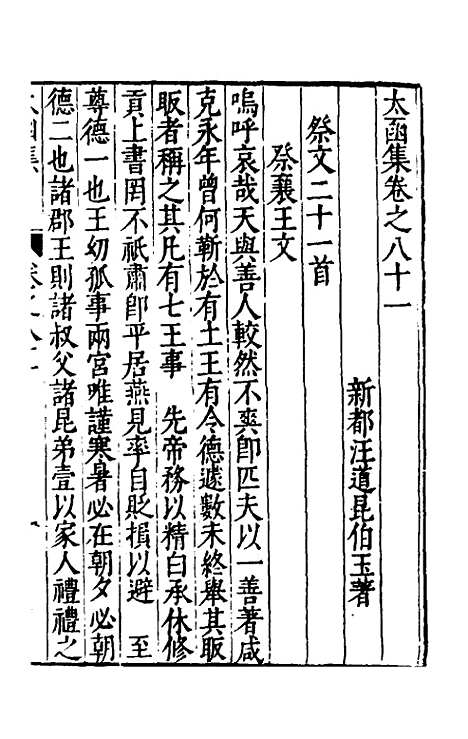 太函集卷之八十一
新都汪道昆伯玉著
祭文二十一首
祭襄王文
嗚呼哀哉天與善人較然不爽卽匹夫以一善著咸
克永年曾何靳於有土王有令德遽數未終舉其販
販者稱之其凡有七王事 先帝務以精白承休修
貢上書罔不祇肅卽平居燕見率自貶損以避 至
尊德一也王幼孤事兩宮唯謹寒暑必在朝夕必朝
德二也諸郡王則諸叔父諸昆弟壹以家人禮禮之